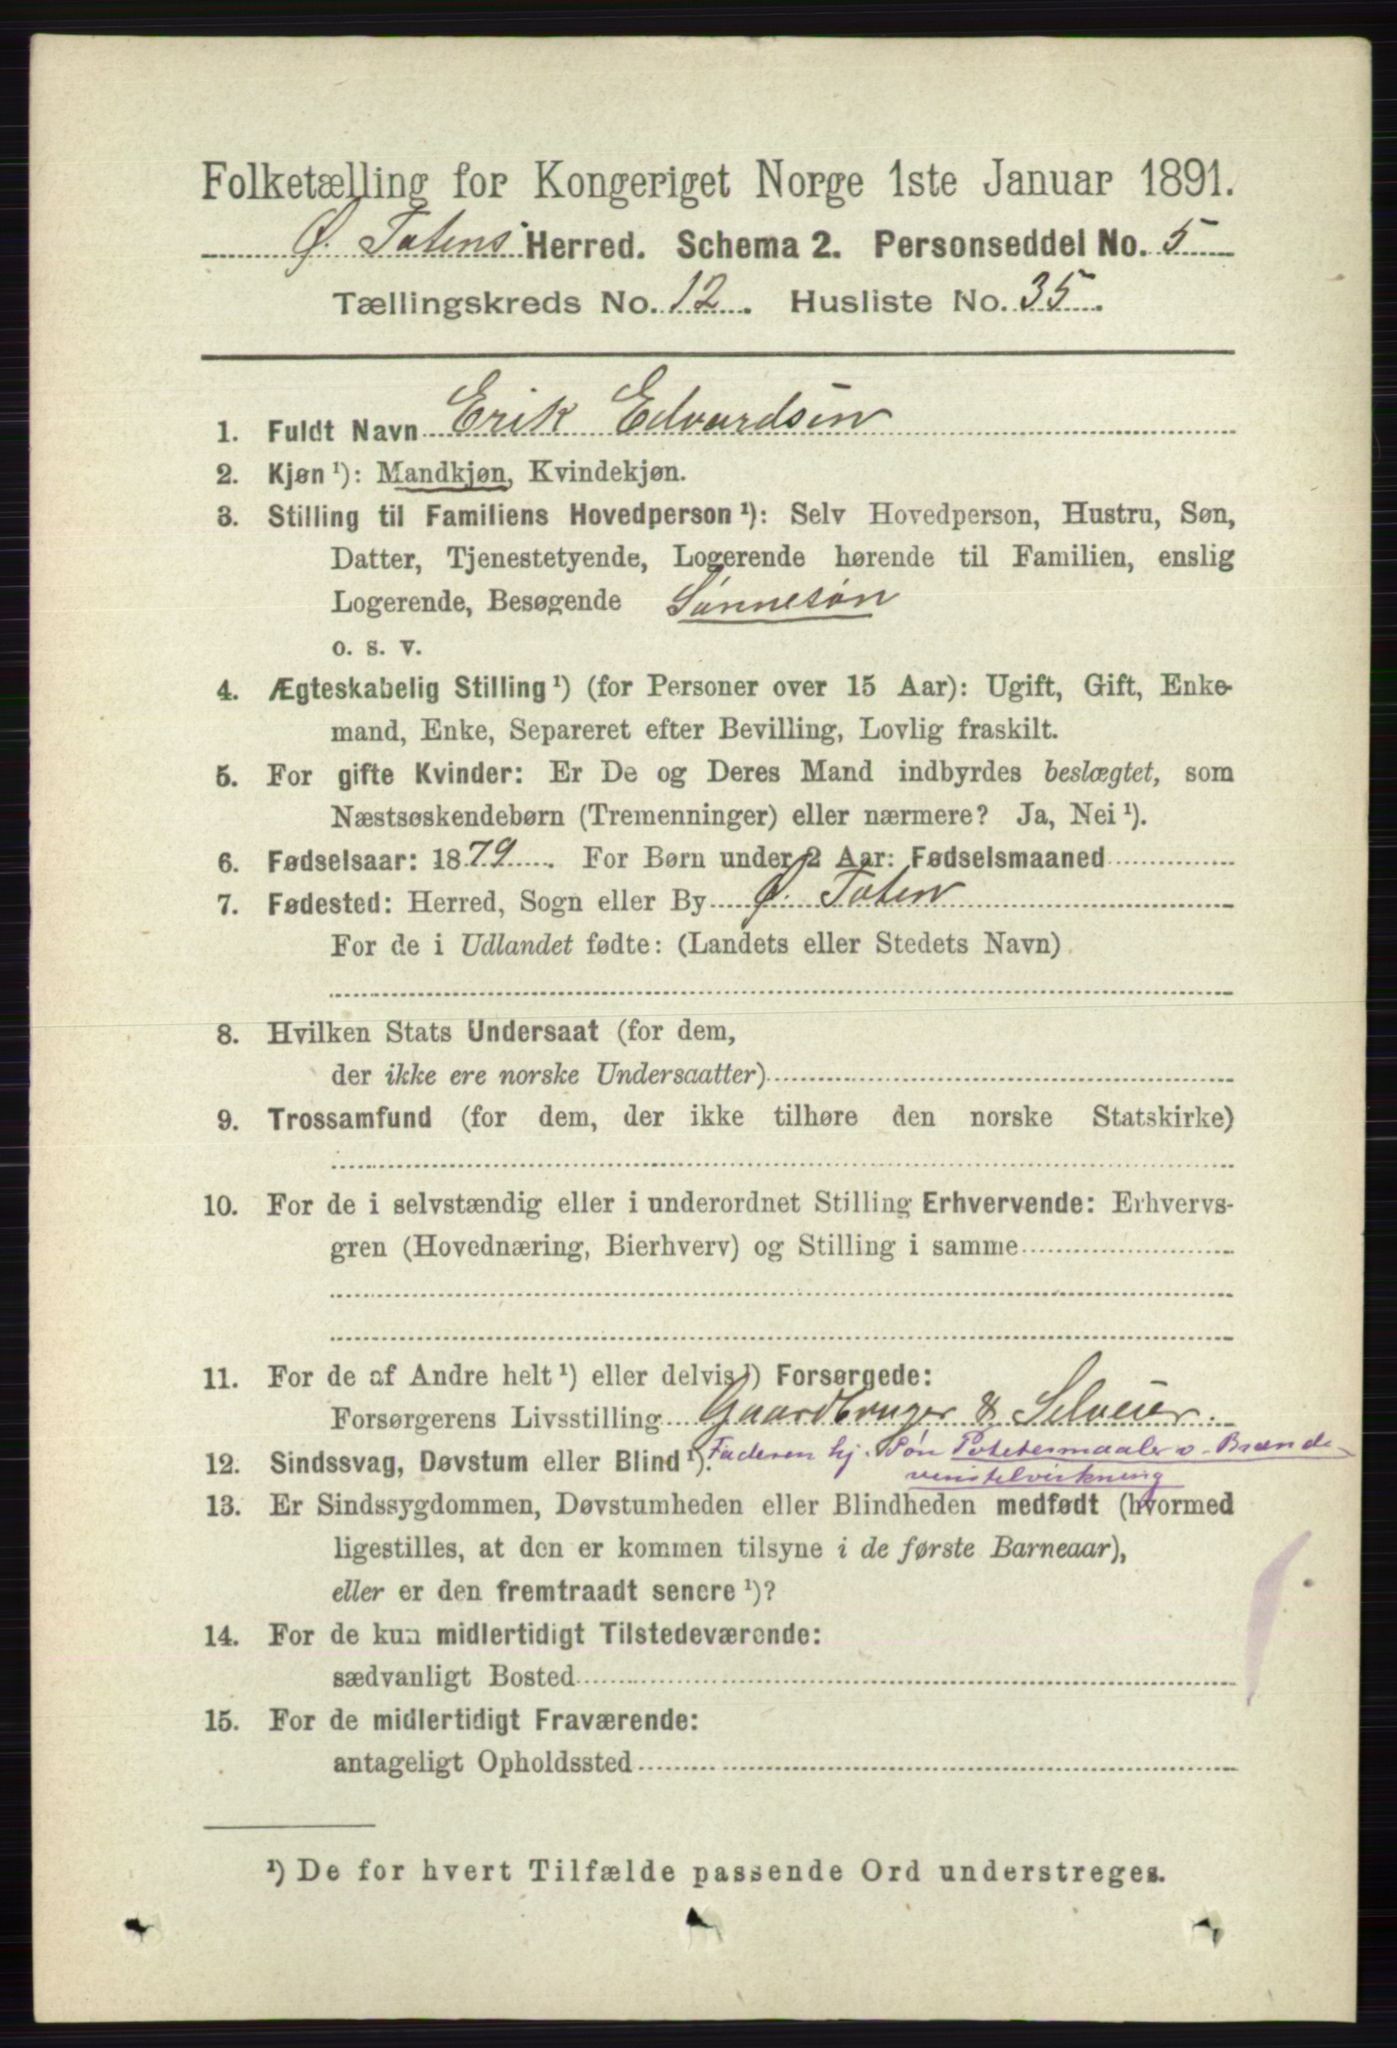 Folketælling for Kongeriget Norge 1ste Januar 1891.
Ø. Totens Herred. Schema 2. Personseddel No. 5
Tællingskreds No. 12. Husliste No. 35.
1. Fuldt Navn Erik Edvardsen
2. Kjøn ¹): Mandkjøn, Kvindekjøn.
3. Stilling til Familiens Hovedperson ¹): Selv Hovedperson, Hustru, Søn,
Datter, Tjenestetyende, Logerende hørende til Familien, enslig
Logerende, Besøgende Sønnesøn
o. s. v.
4. Ægteskabelig Stilling ¹) (for Personer over 15 Aar): Ugift, Gift, Enke-
mand, Enke, Separeret efter Bevilling, Lovlig fraskilt.
5. For gifte Kvinder: Er De og Deres Mand indbyrdes beslægtet, som
Næstsøskendebørn (Tremenninger) eller nærmere? Ja, Nei ¹).
6. Fødselsaar: 1879. For Børn under 2 Aar: Fødselsmaaned
7. Fødested: Herred, Sogn eller By Ø. Toten
For de i Udlandet fødte: (Landets eller Stedets Navn)
8. Hvilken Stats Undersaat (for dem,
der ikke ere norske Undersaatter)
9. Trossamfund (for dem, der ikke tilhøre den norske Statskirke)
10. For de i selvstændig eller i underordnet Stilling Erhvervende: Erhvervs-
gren (Hovednæring, Bierhverv) og Stilling i samme
11. For de af Andre helt ¹) eller delvis ¹) Forsørgede:
Forsørgerens Livsstilling Gaardbruger & Selveier.
12. Sindssvag, Døvstum eller Blind ¹). Faderen hj. Søn Potetesmaaler v. Brænde-
vinstilvirkning
13. Er Sindssygdommen, Døvstumheden eller Blindheden medfødt (hvormed
ligestilles, at den er kommen tilsyne i de første Barneaar),
eller er den fremtraadt senere ¹)?
14. For de kun midlertidigt Tilstedeværende:
sædvanligt Bosted
15. For de midlertidigt Fraværende:
antageligt Opholdssted
¹) De for hvert Tilfælde passende Ord understreges.